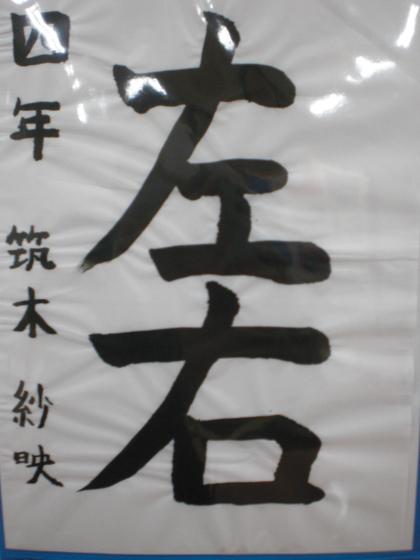 左右
四年 筑木 紗映